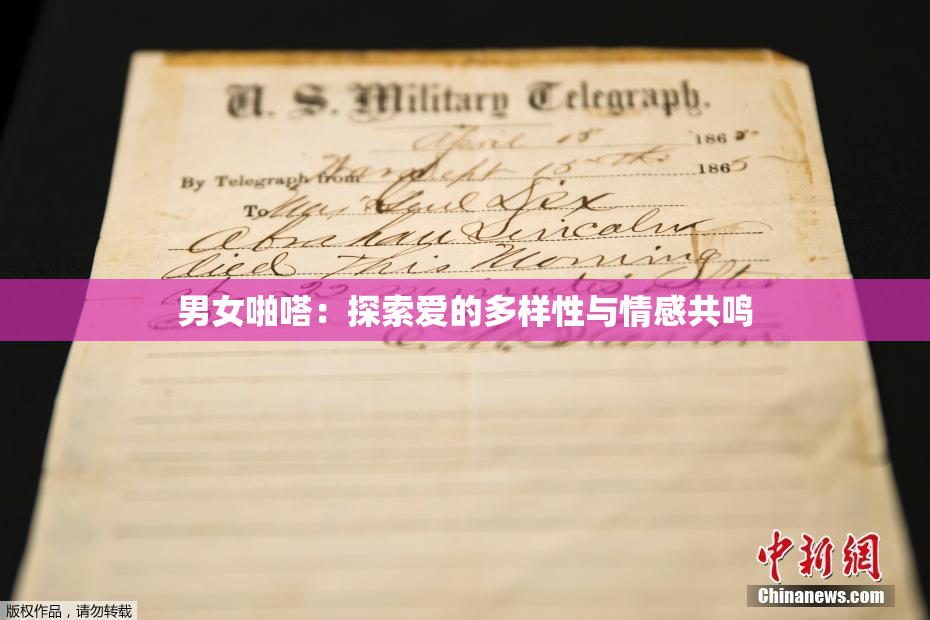 U. S. Military Telegraph.
April 15 1865
By Telegraph from War Dept 15th 1865
To Maj Genl Dix
Abraham Lincoln
died This Morning
at 22 minutes after
男女啪嗒：探索爱的多样性与情感共鸣
中新网
Chinanews.com
版权作品，请勿转载